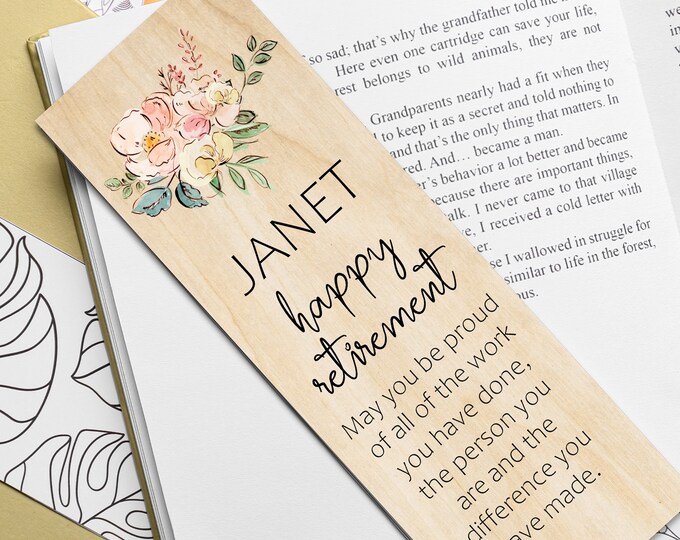 JANET
happy
retirement
May you be proud
of all of the work
you have done,
the person you
are and the
difference you
ave made.
so sad; that's why the grandfather told me
Here even one cartridge can save your life,
rest belongs to wild animals, they are not
Grandparents nearly had a fit when they
to keep it as a secret and told nothing to
and that's the only thing that matters. In
red. And… became a man.
r's behavior a lot better and became
because there are important things,
alk. I never came to that village
, I received a cold letter with
ver.
se I wallowed in struggle for
similar to life in the forest,
ous.